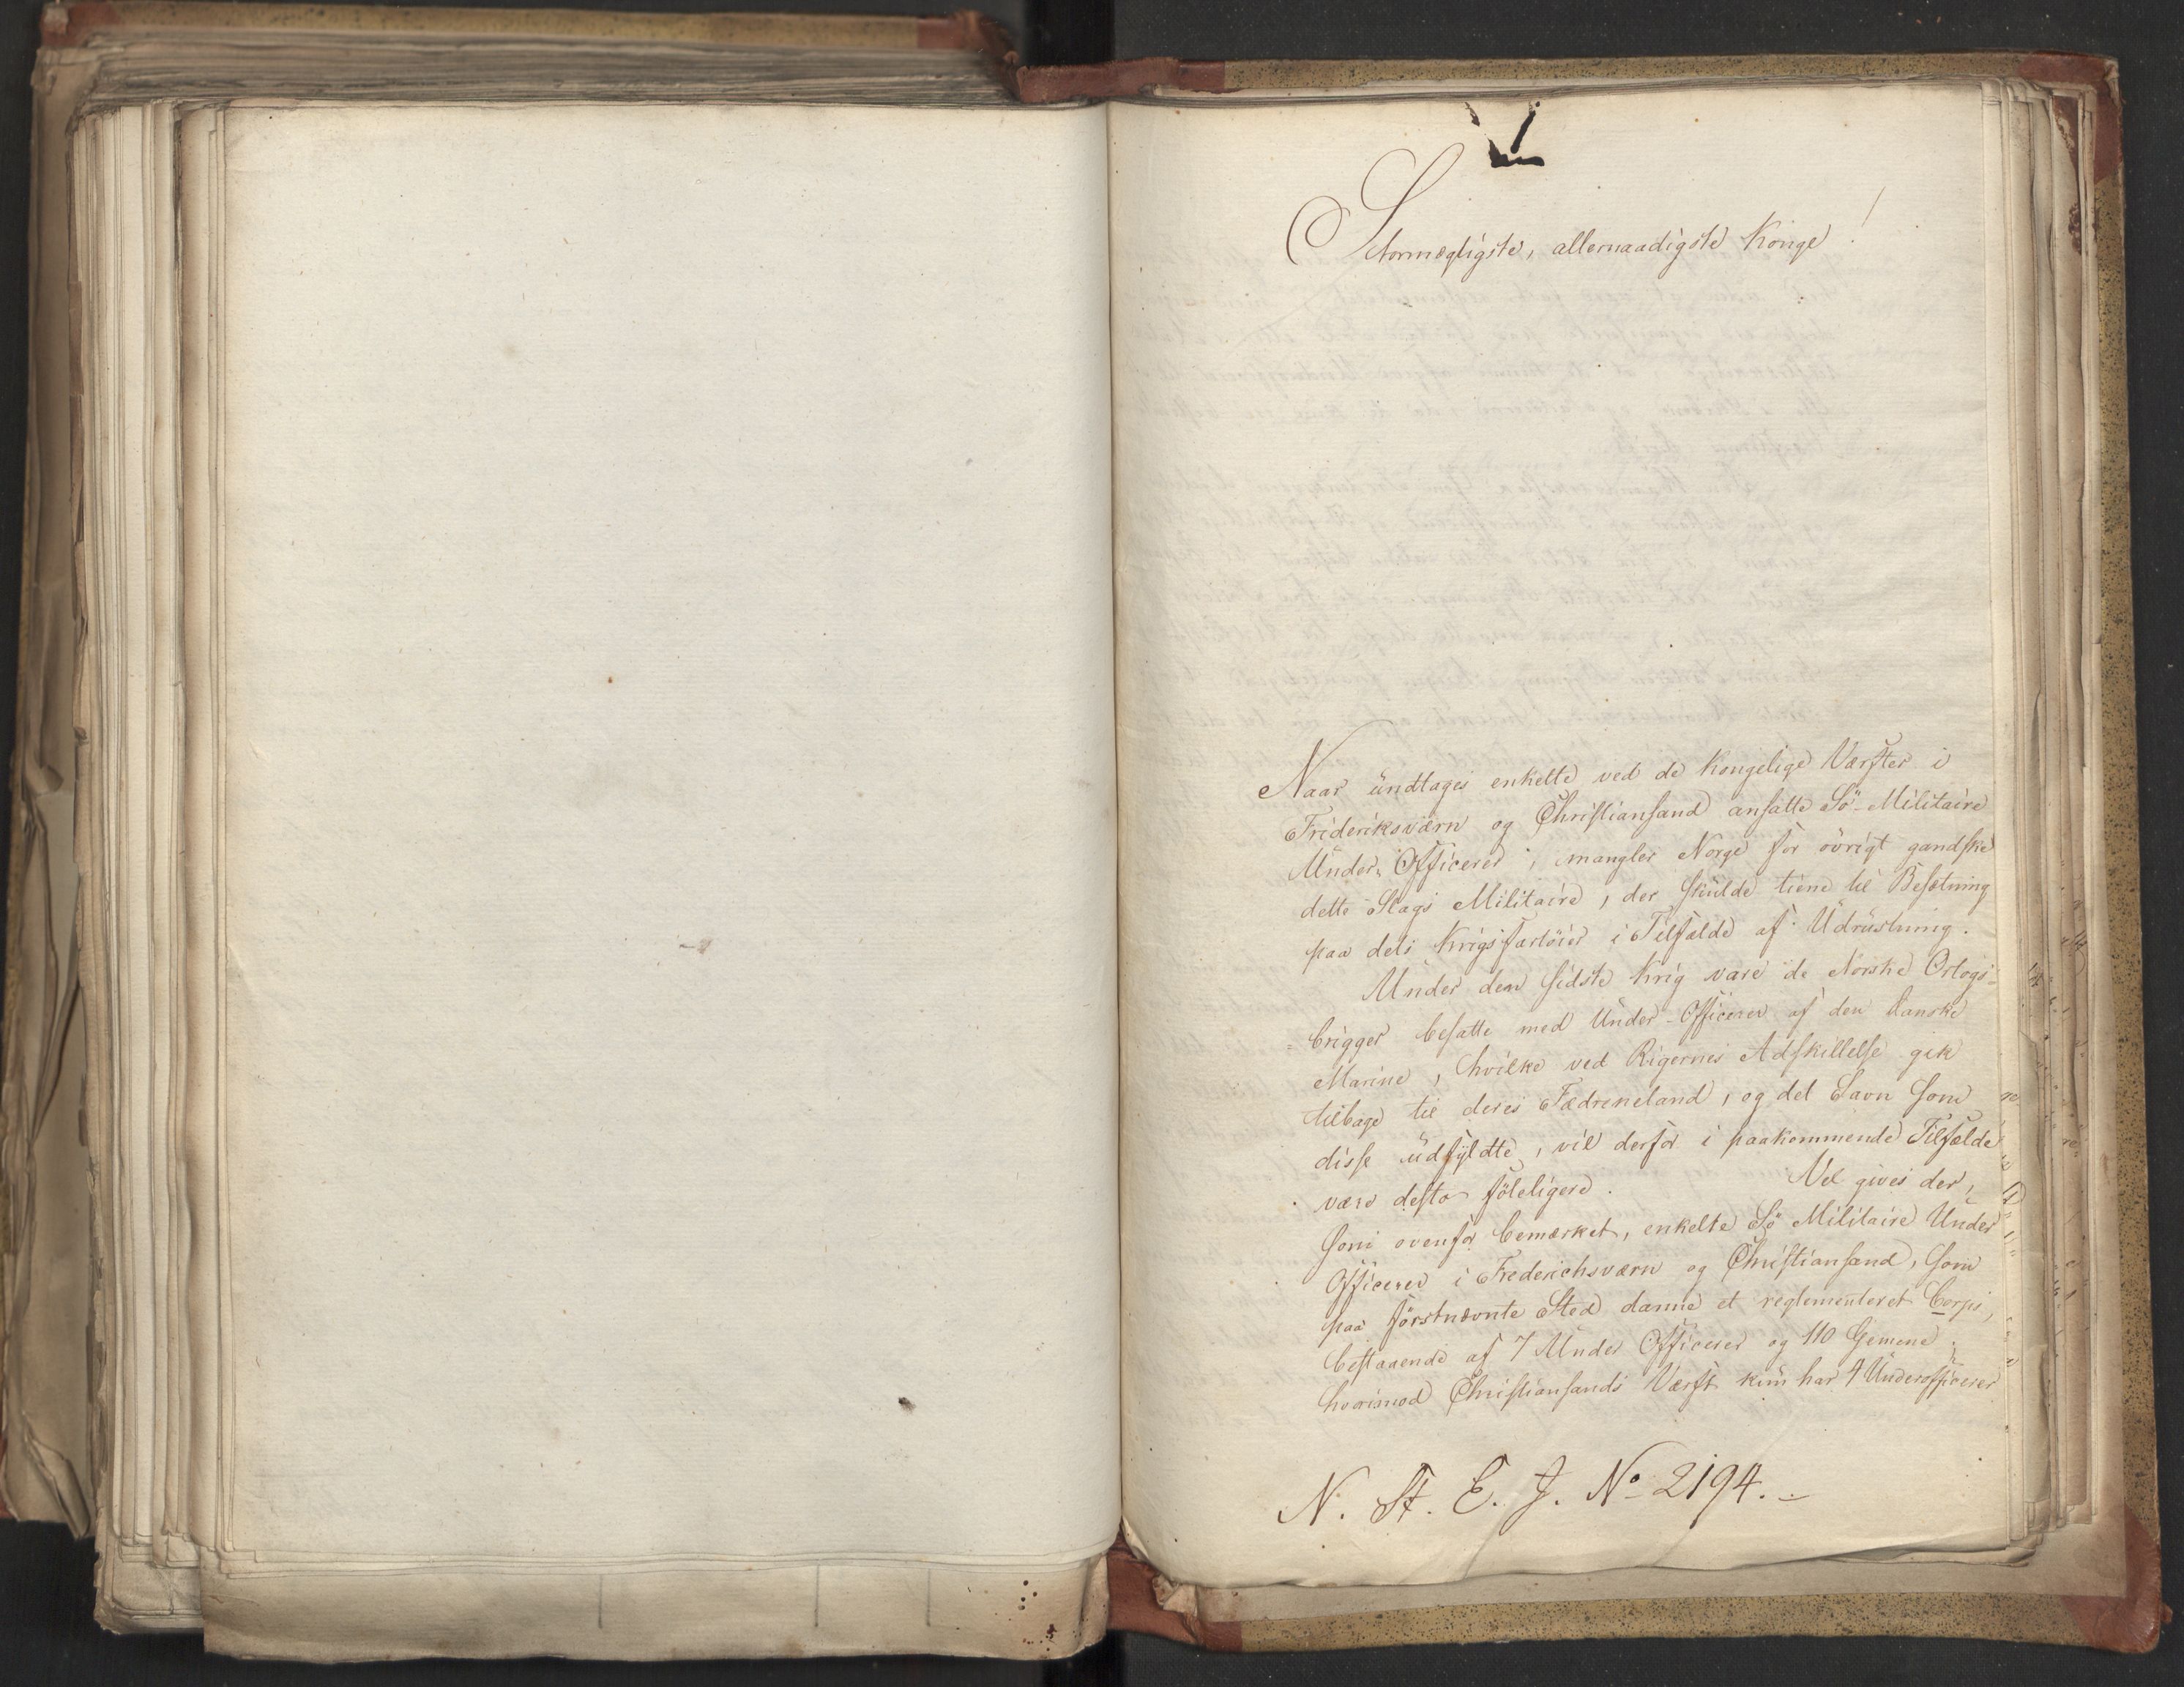 Stormægtigste, allernaadigste Konge!
Naar undtages enkelte ved de Kongelige Værfter i
Frideriksværn og Christiansand ansatte Sö-Militaire
Under-Officerer, mangler Norge for övrigt gandske
dette Slags Militaire, der skulde tiene til Besætning
paa dets Krigsfartöier i Tilfælde af Udrustning.
Under den sidste Krig vare de Norske Orlogs-
=brigger besatte med Under-Officerer af den danske
Marine, hvilke ved Rigernes Adskillelse gik
tilbage til deres Fædreneland, og det Savn som
disse udfyldte, vil derfor i paakommende Tilfælde
være desto föleligere. Vel gives der,
som ovenfor bemærket, enkelte Sö Militaire Under
Officerer i Frederichsværn og Christiansand, som
paa förstnævnte Sted danne et reglementeret Corps,
bestaaende af 7 Under Officerer og 110 Gemene,
hvorimod Christiansands Værft kun har 4 Underofficerer
N. St. E. J. No 2194.